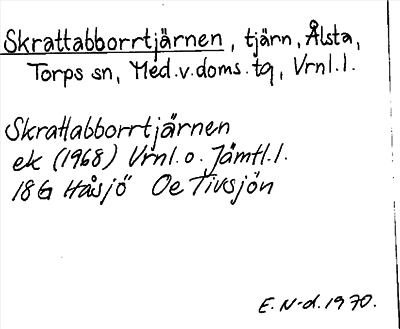 Skrattabborrtjärnen, tjärn, Ålsta,
Torps sn, Med.v.doms.tg, Vrnl.l.
Skrattabborrtjärnen
ek (1968) Vrnl.o. Jämtl.l.
18G Håsjö Oe Tivsjön
E. N-d. 1970.